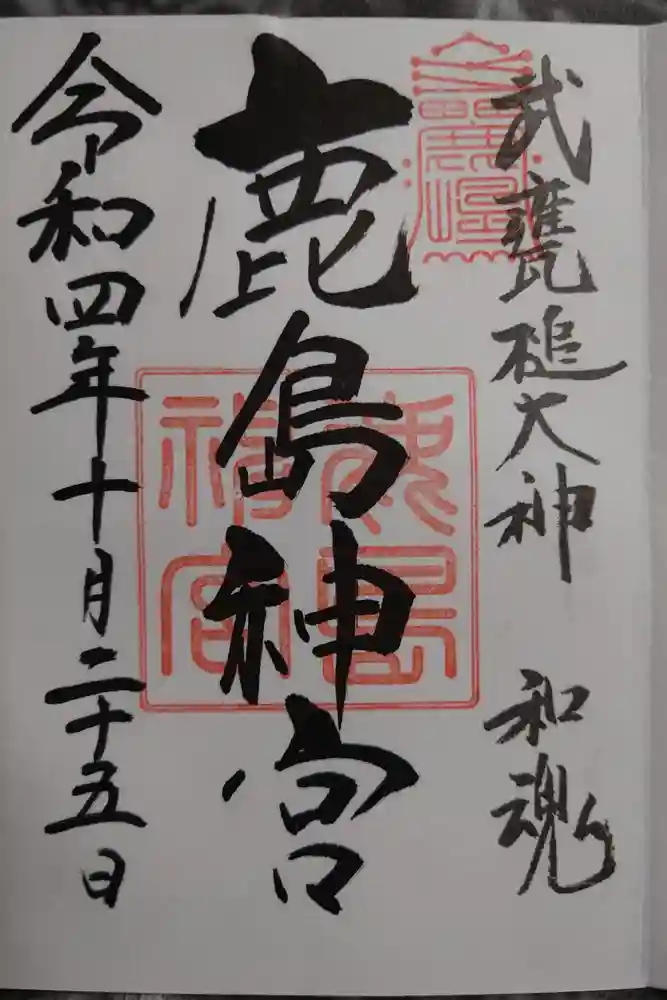 武甕槌大神　和魂
鹿島神宮
鹿島神宮
令和四年十月二十五日